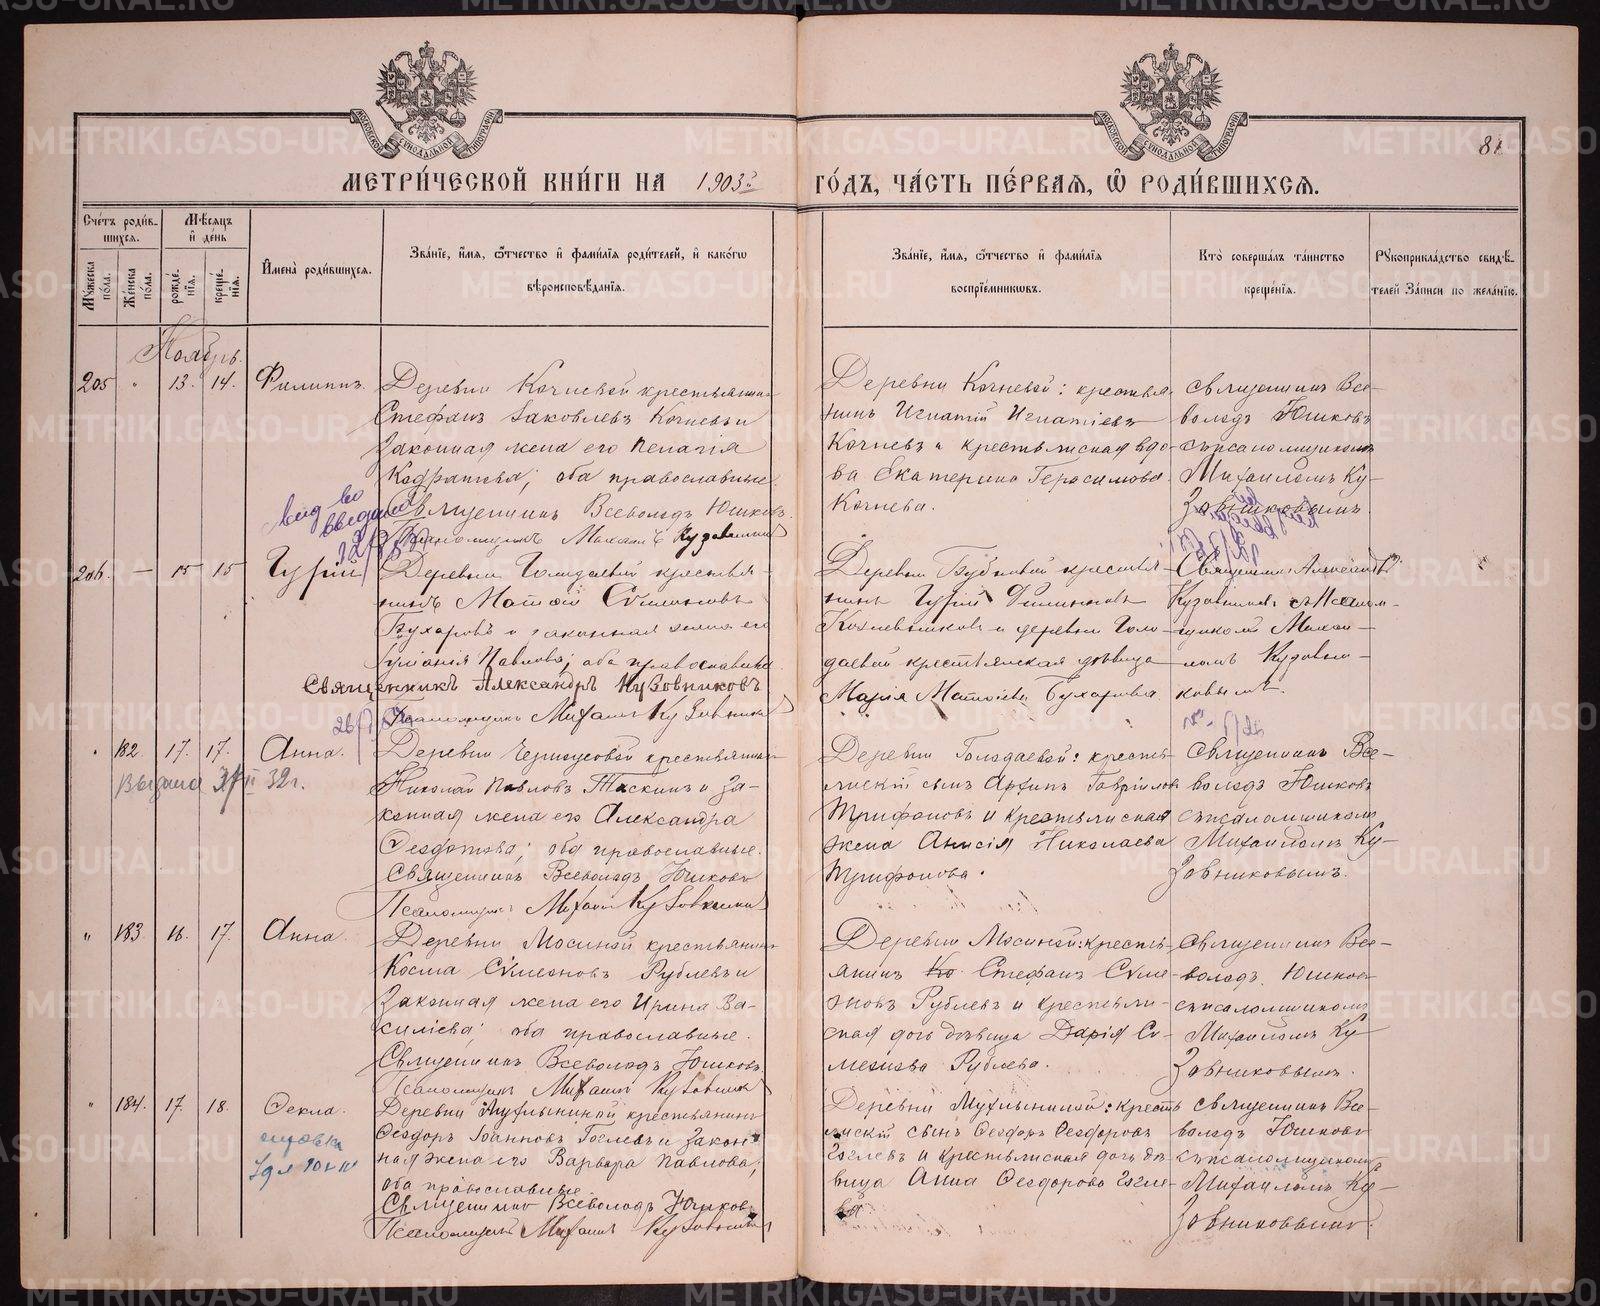 МЕТРИ́ЧЕСКОЙ КНИ́ГИ НА 1903й
ГО́ДЪ, ЧА́СТЬ ПЕ́РВАЯ, Ѽ РОДИ́ВШИХСЯ.
81
Сче́тъ роди́в-
шихся.
Мѣсяцъ
и̂ де́нь
Му́жеска по́ла.
Же́нска по́ла.
рожде́нїя.
креще́нїя.
И҆мена̀ роди́вшихся.
Зва́нїе, и҆́мя, ѻ҆́тчество и҆ фами́лїя роди́телей, и҆ како́гѡ
вѣроисповѣ́данїя.
Зва́нїе, и҆́мя, ѻ҆́тчество и҆ фами́лїя
воспрїе́мниковъ.
Кто̀ соверша́лъ та́инство
креще́нїя.
Рꙋкоприкла́дство свидѣ́-
телей за́писи по жела́нїю.
Ноябрь.
205 " 13. 14. Филиппъ.
Деревни Кочневой крестьянинъ
Стефанъ Іаковлевъ Кочневъ и
законная жена его Пелагія
Кодратова; оба православные.
Священникъ Всеволодъ Юшковъ.
Псаломщикъ Михаилъ Кузовников
Деревни Кочневой: крестья-
нинъ Игнатій Игнатіевъ
Кочневъ и крестьянская вдо-
ва Екатерина Герасимова
Кочнева.
Священникъ Все-
володъ Юшковъ
съ псаломщикомъ
Михаиломъ Ку-
зовниковымъ.
206. — 15 15 Гурій
Деревни Голодаевой крестья-
нинъ Матѳій Сѷмеоновъ
Бухаровъ и законная жена его
Іуліанія Павлова; оба православные
Священникъ Александръ Кузовниковъ
Псаломщикъ Михаилъ Кузовников
Деревни Бубновой крестья-
нинъ Гурій Филипповъ
Кожевниковъ и деревни Голо-
даевой крестьянская дѣвица
Марія Матѳіева Бухарова.
Священникъ Александръ
Кузовниковъ съ Псалом-
щикомъ Михаи-
ломъ Кузовни-
ковымъ.
" 182. 17. 17. Анна.
Выдана 32г.
Николай Павловъ Таскинъ и за-
конная жена его Александра
Ѳеодотова; оба православные.
Священникъ Всеволодъ Юшковъ
Псаломщикъ Михаилъ Кузовников
Деревни Голодаевой: кресть-
янскій сынъ Архипъ Гавріиловъ
Трифоновъ и крестьянская
жена Анисія Николаева
Трифонова.
Священникъ Все-
володъ Юшковъ
съ псаломщикомъ
Михаиломъ Ку-
зовниковымъ.
" 183. 16. 17. Анна.
Деревни Мосиной крестьянинъ
Косма Сѷмеоновъ Рублевъ и
законная жена его Ирина Ва-
силіева; оба православные.
Священникъ Всеволодъ Юшковъ
Псаломщикъ Михаилъ Кузовников
Деревни Мосиной: кресть-
янинъ Ко Стефанъ Сѷме-
оновъ Рублевъ и крестьян-
ская дочь дѣвица Дарія Си-
меонова Рублева.
Священникъ Все-
володъ Юшковъ
съ псаломщикомъ
Михаиломъ Ку-
зовниковымъ.
" 184. 17. 18. Ѳекла.
Деревни Мухлыниной крестьянинъ
Ѳеодоръ Іоанновъ Гоглевъ и закон-
ная жена его Варвара Павлова;
оба православные.
Священникъ Всеволодъ Юшковъ
Псаломщикъ Михаилъ Кузовников
Деревни Мухлыниной: кресть-
янскій сынъ Ѳеодоръ Ѳеодоровъ
Гоглевъ и крестьянская дочь дѣ-
вица Анна Ѳеодорова Гогле-
ва
Священникъ Все-
володъ Юшковъ
съ псаломщикомъ
Михаиломъ Ку-
зовниковымъ.
METRIKI.GASO-URAL.RU